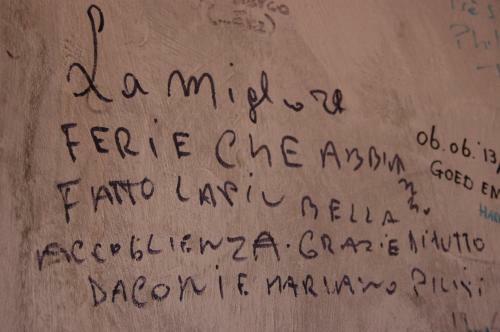 La migliore
FERIE CHE ABBIA
mo
FATTO LA PIU BELLA
ACCOGLIENZA. GRAZIE DI TUTTO
DA CONI E MARIANO
06.06.13
GOED EN